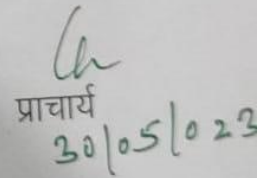 प्राचार्य
30/05/023